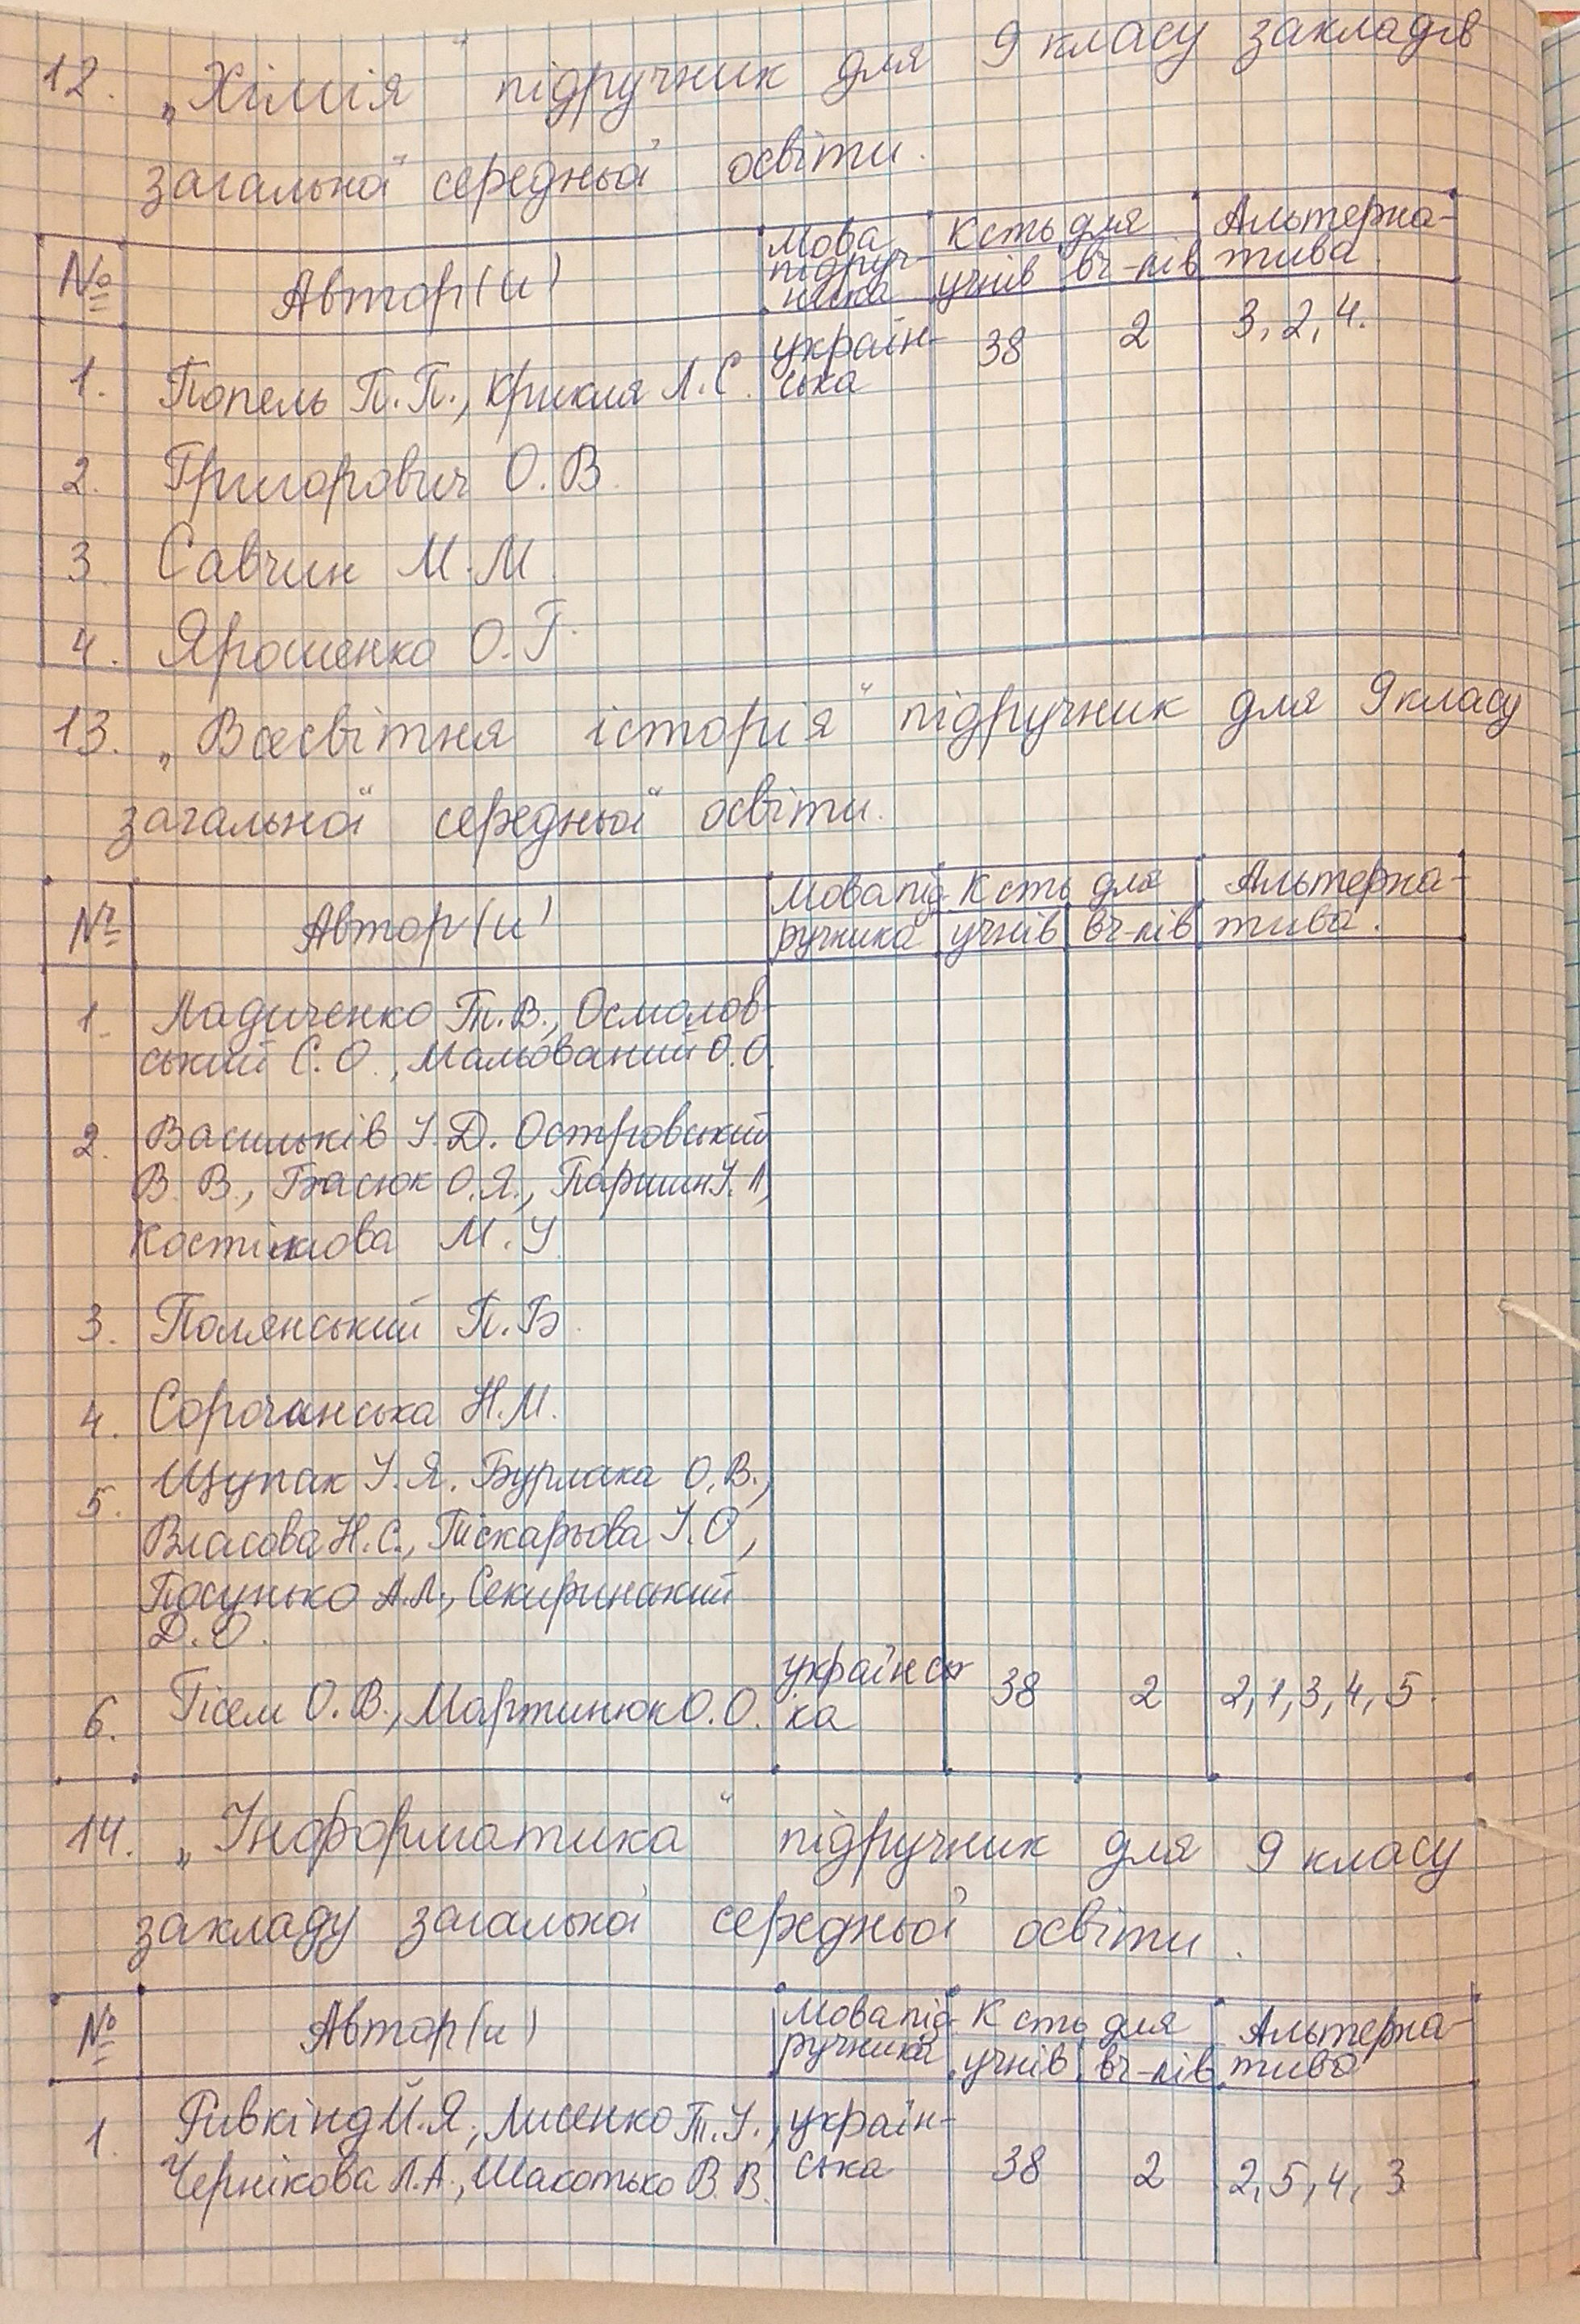 12. „Хімія" підручник для 9 класу закладів
загальної середньої освіти.
№ Автор(и) Мова підруч-ника К сть для учнів вч-лів Альтерна-тива.
1. Попель П.П., Крикля Л.С. україн-ська 38 2 3, 2, 4.
2. Григорович О.В.
3. Савчин М.М.
4. Ярошенко О.Г.
13. „Всесвітня історія" підручник для 9 класу
загальної середньої освіти.
№ Автор(и) Мова під-ручника К сть для учнів вч-лів Альтерна-тива.
1. Ладиченко Т.В., Осмолов-
ський С.О., Мальований О.О.
2. Васильків І.Д. Островський
В.В., Басюк О.Я., Паршин І.Л,
Костікова М.І.
3. Полянський П.Б.
4. Сорочинська Н.М.
5. Щупак І.Я. Бурлака О.В.,
Власова Н.С., Піскарьова І.О,
Посунько А.Л., Секиринський
Д.О.
6. Гісем О.В., Мартинюк О.О. українсь ка 38 2 2, 1, 3, 4, 5.
14. „Інформатика" підручник для 9 класу
закладу загальної середньої освіти.
№ Автор(и) Мова під-ручника К сть для учнів вч-лів Альтерна-тива
1. Ривкінд Й.Я., Лисенко Т.І., україн-
Чернікова Л.А., Шакотько В.В. ська 38 2 2, 5, 4, 3